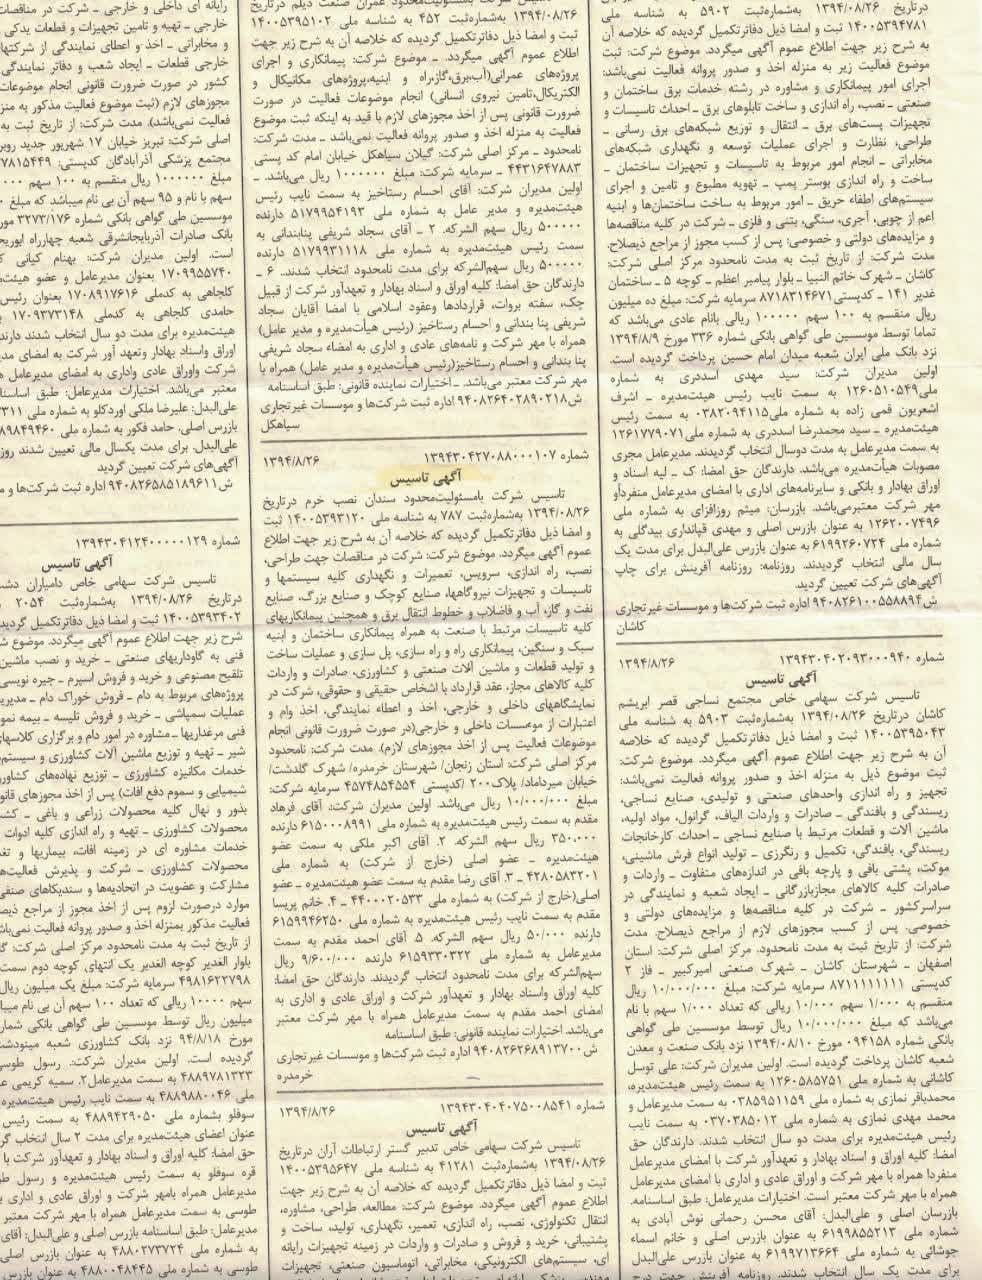 درتاریخ ۱۳۹۴/۰۸/۲۶ به‌شماره‌ثبت ۵۹۰۲ به شناسه ملی
۱۴۰۰۵۳۹۴۷۸۱ ثبت و امضا ذیل دفاترتکمیل گردیده که خلاصه آن
به شرح زیر جهت اطلاع عموم آگهی میگردد. موضوع شرکت: ثبت
موضوع فعالیت زیر به منزله اخذ و صدور پروانه فعالیت نمی‌باشد:
اجرای امور پیمانکاری و مشاوره در رشته خدمات برق ساختمان و
صنعتی ـ نصب، راه اندازی و ساخت تابلوهای برق ـ احداث تاسیسات و
تجهیزات پست‌های برق ـ انتقال و توزیع شبکه‌های برق رسانی ـ
طراحی، نظارت و اجرای عملیات توسعه و نگهداری شبکه‌های
مخابراتی ـ انجام امور مربوط به تاسیسات و تجهیزات ساختمان ـ
ساخت و راه اندازی بوستر پمپ ـ تهویه مطبوع و تامین و اجرای
سیستم‌های اطفاء حریق ـ امور مربوط به ساخت ساختمان‌ها و ابنیه
اعم از چوبی، آجری، سنگی، بتنی و فلزی ـ شرکت در کلیه مناقصه‌ها
و مزایده‌های دولتی و خصوصی: پس از کسب مجوز از مراجع ذیصلاح.
مدت شرکت: از تاریخ ثبت به مدت نامحدود مرکز اصلی شرکت:
کاشان ـ شهرک خاتم النبیا ـ بلوار پیامبر اعظم ـ کوچه ۵ ـ ساختمان
غدیر ۱۴۱ ـ کدپستی۸۷۱۸۳۱۴۶۷۱ سرمایه شرکت: مبلغ ده میلیون
ریال منقسم به ۱۰۰ سهم ۱۰۰۰۰۰ ریالی بانام عادی می‌باشد که
تماما توسط موسسین طی گواهی بانکی شماره ۳۳۶ مورخ ۱۳۹۴/۸/۹
نزد بانک ملی ایران شعبه میدان امام حسین پرداخت گردیده است.
اولین مدیران شرکت: سید مهدی اسددری به شماره
ملی۱۲۶۰۵۱۰۵۴۹ به سمت نایب رئیس هیئت‌مدیره ـ اشرف
اشعریون قمی زاده به شماره ملی۰۳۸۲۰۹۴۱۱۵ به سمت رئیس
هیئت‌مدیره ـ سید محمدرضا اسددری به شماره ملی۱۲۶۱۷۷۹۰۷۱
به سمت مدیرعامل به مدت دوسال انتخاب گردیدند. مدیرعامل مجری
مصوبات هیأت‌مدیره می‌باشد. دارندگان حق امضا: ک ـ لیه اسناد و
اوراق بهادار و بانکی و سایرنامه‌های اداری با امضای مدیرعامل منفرداًو
مهر شرکت معتبرمی‌باشد. بازرسان: میثم روزافزای به شماره ملی
۱۲۶۲۰۰۷۴۹۶ به عنوان بازرس اصلی و مهدی قپانداری بیدگلی به
شماره ملی ۶۱۹۹۲۶۰۷۲۴ به عنوان بازرس علی‌البدل برای مدت یک
سال مالی انتخاب گردیدند. روزنامه: روزنامه آفرینش برای چاپ
آگهی‌های شرکت تعیین گردید.
ش۹۴۰۸۲۶۱۰۰۵۵۸۸۹۴ اداره ثبت شرکت‌ها و موسسات غیرتجاری
کاشان
شماره ۱۳۹۴۳۰۴۰۲۰۹۳۰۰۰۹۴۰ ۱۳۹۴/۸/۲۶
آگهی تاسیس
تاسیس شرکت سهامی خاص مجتمع نساجی قصر ابریشم
کاشان درتاریخ ۱۳۹۴/۰۸/۲۶ به‌شماره‌ثبت ۵۹۰۳ به شناسه ملی
۱۴۰۰۵۳۹۵۰۴۳ ثبت و امضا ذیل دفاترتکمیل گردیده که خلاصه
آن به شرح زیر جهت اطلاع عموم آگهی میگردد. موضوع شرکت:
ثبت موضوع ذیل به منزله اخذ و صدور پروانه فعالیت نمی‌باشد:
تجهیز و راه اندازی واحدهای صنعتی و تولیدی، صنایع نساجی،
ریسندگی و بافندگی ـ صادرات و واردات الیاف، گرانول، مواد اولیه،
ماشین آلات و قطعات مرتبط با صنایع نساجی ـ احداث کارخانجات
ریسندگی، بافندگی، تکمیل و رنگرزی ـ تولید انواع فرش ماشینی،
موکت، پشتی بافی و پارچه بافی در اندازه‌های متفاوت ـ واردات و
صادرات کلیه کالاهای مجازبازرگانی ـ ایجاد شعبه و نمایندگی در
سراسرکشور ـ شرکت در کلیه مناقصه‌ها و مزایده‌های دولتی و
خصوصی. پس از کسب مجوزهای لازم از مراجع ذیصلاح. مدت
شرکت: از تاریخ ثبت به مدت نامحدود. مرکز اصلی شرکت: استان
اصفهان ـ شهرستان کاشان ـ شهرک صنعتی امیرکبیر ـ فاز ۲
کدپستی ۸۷۱۱۱۱۱۱۱۱ سرمایه شرکت: مبلغ ۱۰/۰۰۰/۰۰۰ ریال
منقسم به ۱/۰۰۰ سهم ۱۰/۰۰۰ ریالی که تعداد ۱/۰۰۰ سهم با نام
می‌باشد که مبلغ ۱۰/۰۰۰/۰۰۰ ریال توسط موسسین طی گواهی
بانکی شماره ۰۹۴۱۵۸ مورخ ۱۳۹۴/۰۸/۱۰ نزد بانک صنعت و معدن
شعبه کاشان پرداخت گردیده است. اولین مدیران شرکت: علی توسل
کاشانی به شماره ملی ۱۲۶۰۵۸۵۷۵۱ به سمت رئیس هیئت‌مدیره،
محمدباقر نمازی به شماره ملی ۰۳۸۵۹۵۱۱۵۹ به سمت مدیرعامل و
محمد مهدی نمازی به شماره ملی ۰۳۷۰۳۸۵۰۱۲ به سمت نایب
رئیس هیئت‌مدیره برای مدت دو سال انتخاب شدند. دارندگان حق
امضا: کلیه اوراق و اسناد بهادار و تعهدآور شرکت با امضای مدیرعامل
منفردا همراه با مهر شرکت و اوراق عادی و اداری با امضای مدیرعامل
همراه با مهر شرکت معتبر است. اختیارات مدیرعامل: طبق اساسنامه.
بازرسان اصلی و علی‌البدل: آقای محسن رحمانی نوش آبادی به
شماره ملی ۶۱۹۹۸۵۵۲۱۳ به عنوان بازرس اصلی و خانم اسماء
جوشائی به شماره ملی ۶۱۹۹۷۱۳۶۶۴ به عنوان بازرس علی‌البدل
برای مدت یک سال انتخاب شدند. روزنامه آفرینش جهت درج
تاسیس شرکت بامسئولیت‌محدود عمران صنعت دیلم درتاریخ
۱۳۹۴/۰۸/۲۶ به‌شماره‌ثبت ۴۵۲ به شناسه ملی ۱۴۰۰۵۳۹۵۱۰۲
ثبت و امضا ذیل دفاترتکمیل گردیده که خلاصه آن به شرح زیر جهت
اطلاع عموم آگهی میگردد. ـ موضوع شرکت: پیمانکاری و اجرای
پروژه‌های عمرانی(آب،برق،گاز،راه و ابنیه،پروژه‌های مکانیکال و
الکتریکال،تامین نیروی انسانی) انجام موضوعات فعالیت در صورت
ضرورت قانونی پس از اخذ مجوزهای لازم با قید به اینکه ثبت موضوع
فعالیت به منزله اخذ و صدور پروانه فعالیت نمی‌باشد ـ مدت شرکت:
نامحدود ـ مرکز اصلی شرکت: گیلان سیاهکل خیابان امام کد پستی
۴۴۳۱۶۴۷۸۸۳ ـ سرمایه شرکت: مبلغ ۱۰۰۰۰۰۰ ریال می‌باشد. ـ
اولین مدیران شرکت: آقای احسام رستاخیز به سمت نایب رئیس
هیئت‌مدیره و مدیر عامل به شماره ملی ۵۱۷۹۹۵۴۱۹۳ دارنده
۵۰۰۰۰۰ ریال سهم الشرکه. ۲ ـ آقای سجاد شریفی پنابندانی به
سمت رئیس هیئت‌مدیره به شماره ملی ۵۱۷۹۹۳۱۱۱۸ دارنده
۵۰۰۰۰۰ ریال سهم‌الشرکه برای مدت نامحدود انتخاب شدند. ۶ ـ
دارندگان حق امضا: کلیه اوراق و اسناد بهادار و تعهدآور شرکت از قبیل
چک، سفته بروات، قراردادها وعقود اسلامی با امضا آقایان سجاد
شریفی پنا بندانی و احسام رستاخیز (رئیس هیأت‌مدیره و مدیر عامل)
همراه با مهر شرکت و نامه‌های عادی و اداری به امضاء سجاد شریفی
پنا بندانی و احسام رستاخیز(رئیس هیأت‌مدیره و مدیر عامل) همراه با
مهر شرکت معتبر می‌باشد. ـ اختیارات نماینده قانونی: طبق اساسنامه
ش۹۴۰۸۲۶۴۰۲۸۹۰۲۱۸ اداره ثبت شرکت‌ها و موسسات غیرتجاری
سیاهکل
شماره ۱۳۹۴۳۰۴۲۷۰۸۸۰۰۰۱۰۷ ۱۳۹۴/۸/۲۶
آگهی تاسیس
تاسیس شرکت بامسئولیت‌محدود سندان نصب خرم درتاریخ
۱۳۹۴/۰۸/۲۶ به‌شماره‌ثبت ۷۸۷ به شناسه ملی ۱۴۰۰۵۳۹۳۱۲۰ ثبت
و امضا ذیل دفاترتکمیل گردیده که خلاصه آن به شرح زیر جهت اطلاع
عموم آگهی میگردد. موضوع شرکت: شرکت در مناقصات جهت طراحی،
نصب، راه اندازی، سرویس، تعمیرات و نگهداری کلیه سیستمها و
تاسیسات و تجهیزات نیروگاهها، صنایع کوچک و صنایع بزرگ، صنایع
نفت و گاز، آب و فاضلاب و خطوط انتقال برق و همچنین پیمانکاریهای
کلیه تاسیسات مرتبط با صنعت به همراه پیمانکاری ساختمان و ابنیه
سبک و سنگین، پیمانکاری راه و راه سازی، پل سازی و عملیات ساخت
و تولید قطعات و ماشین آلات صنعتی و کشاورزی، صادرات و واردات
کلیه کالاهای مجاز، عقد قرارداد با اشخاص حقیقی و حقوقی، شرکت در
نمایشگاههای داخلی و خارجی، اخذ و اعطاء نمایندگی، اخذ وام و
اعتبارات از موءسسات داخلی و خارجی(در صورت ضرورت قانونی انجام
موضوعات فعالیت پس از اخذ مجوزهای لازم). مدت شرکت: نامحدود
مرکز اصلی شرکت: استان زنجان/ شهرستان خرمدره/ شهرک گلدشت/
خیابان میرداماد/ پلاک۲۰۰ /کدپستی ۴۵۷۴۸۵۴۵۵۴ سرمایه شرکت:
مبلغ ۱۰/۰۰۰/۰۰۰ ریال می‌باشد. اولین مدیران شرکت: آقای فرهاد
مقدم به سمت رئیس هیئت‌مدیره به شماره ملی ۶۱۵۰۰۰۸۹۹۱ دارنده
۳۵۰.۰۰۰ ریال سهم الشرکه. ۲. آقای اکبر ملکی به سمت عضو
هیئت‌مدیره ـ عضو اصلی (خارج از شرکت) به شماره ملی
۴۲۸۰۵۸۳۲۰۱ ـ ۳. آقای رضا مقدم به سمت عضو هیئت‌مدیره ـ عضو
اصلی(خارج از شرکت) به شماره ملی ۴۴۰۰۰۲۰۵۳۳ ـ ۴. خانم پریسا
مقدم به سمت نایب رئیس هیئت‌مدیره به شماره ملی ۶۱۵۹۹۴۶۲۵۰
دارنده ۵۰/۰۰۰ ریال سهم الشرکه. ۵. آقای احمد مقدم به سمت
مدیرعامل به شماره ملی ۶۱۵۹۳۳۰۳۲۲ دارنده ۹/۶۰۰/۰۰۰ ریال
سهم‌الشرکه برای مدت نامحدود انتخاب گردیدند. دارندگان حق امضا:
کلیه اوراق واسناد بهادار و تعهدآور شرکت و اوراق عادی و اداری به
امضای احمد مقدم به سمت مدیرعامل همراه با مهر شرکت معتبر
می‌باشد. اختیارات نماینده قانونی: طبق اساسنامه
ش۹۴۰۸۲۶۲۶۸۹۱۳۷۰۰ اداره ثبت شرکت‌ها و موسسات غیرتجاری
خرمدره
شماره ۱۳۹۴۳۰۴۰۴۰۷۵۰۰۸۵۴۱ ۱۳۹۴/۸/۲۶
آگهی تاسیس
تاسیس شرکت سهامی خاص تدبیر گستر ارتباطات آران درتاریخ
۱۳۹۴/۰۸/۲۶ به‌شماره‌ثبت ۴۱۲۸۱ به شناسه ملی ۱۴۰۰۵۳۹۵۶۴۷
ثبت و امضا ذیل دفاترتکمیل گردیده که خلاصه آن به شرح زیر جهت
اطلاع عموم آگهی میگردد. موضوع شرکت: مطالعه، طراحی، مشاوره،
انتقال تکنولوژی، نصب، راه اندازی، تعمیر، نگهداری، تولید، ساخت و
پشتیبانی، خرید و فروش و صادرات و واردات در زمینه تجهیزات رایانه
ای، سیستم‌های الکترونیکی، مخابراتی، اتوماسیون صنعتی، تجهیزات
رایانه ای داخلی و خارجی ـ شرکت در مناقصات
خارجی ـ تهیه و تامین تجهیزات و قطعات یدکی
و مخابراتی ـ اخذ و اعطای نمایندگی از شرکتها
خارجی قطعات ـ ایجاد شعب و دفاتر نمایندگی
کشور در صورت ضرورت قانونی انجام موضوعات
مجوزهای لازم (ثبت موضوع فعالیت مذکور به منز
فعالیت نمی‌باشد). مدت شرکت: از تاریخ ثبت به
اصلی شرکت: تبریز خیابان ۱۷ شهریور جدید روبر
مجتمع پزشکی آذرآبادگان کدپستی: ۷۸۱۵۴۴۹
مبلغ ۱۰۰۰۰۰۰ ریال منقسم به ۱۰۰ سهم ۰۰۰
سهم با نام و ۹۵ سهم آن بی نام میباشد که مبلغ
موسسین طی گواهی بانکی شماره ۳۲۷۳/۱۷۶ مور
بانک صادرات آذربایجانشرقی شعبه چهارراه ابوریحا
است. اولین مدیران شرکت: بهنام کیانی ک
۱۷۰۹۹۵۵۷۴۰ بعنوان مدیرعامل و عضو هیئت
کلجاهی به کدملی ۱۷۰۸۹۱۷۶۱۶ بعنوان رئیس
حامدی کلجاهی به کدملی ۱۷۰۹۳۷۳۱۴۸
هیئت‌مدیره برای مدت دو سال انتخاب شدند دارند
اوراق واسناد بهادار وتعهد آور شرکت به امضای مدی
شرکت واوراق عادی واداری به امضای مدیرعامل ه
معتبر می‌باشد. اختیارات مدیرعامل: طبق اساسنامه
علی‌البدل: علیرضا ملکی اوردکلو به شماره ملی ۳۳۱۱
بازرس اصلی. حامد فکور به شماره ملی ۸۹۸۴۹۴۶۰
علی‌البدل، برای مدت یکسال مالی تعیین شدند روز
آگهی‌های شرکت تعیین گردید
ش۹۴۰۸۲۶۵۸۵۱۸۹۶۱۱ اداره ثبت شرکت‌ها و م
شماره ۱۳۹۴۳۰۴۱۲۴۰۰۰۰۱۲۹
آگهی تاسیس
تاسیس شرکت سهامی خاص دامیاران دشت
درتاریخ ۱۳۹۴/۰۸/۲۶ به‌شماره‌ثبت ۲۰۵۴
۱۴۰۰۵۳۹۳۴۰۲ ثبت و امضا ذیل دفاترتکمیل گردید
شرح زیر جهت اطلاع عموم آگهی میگردد. موضوع ش
فنی به گاوداریهای صنعتی ـ خرید و نصب ماشین
تلقیح مصنوعی و خرید و فروش اسپرم ـ جیره نویسی
پروژه‌های مربوط به دام ـ فروش خوراک دام ـ مدیری
عملیات سمپاشی ـ خرید و فروش تلیسه ـ بیمه نمو
فنی مرغداریها ـ مشاوره در امور دام و برگزاری کلاسها
شیر ـ تهیه و توزیع ماشین آلات کشاورزی و سیستم
خدمات مکانیزه کشاورزی ـ توزیع نهاده‌های کشاور
شیمیایی و سموم دفع افات) پس از اخذ مجوزهای قانو
بذور و نهال کلیه محصولات زراعی و باغی ـ کش
محصولات کشاورزی ـ تهیه و راه اندازی کلیه ادوات
خدمات مشاوره ای در زمینه افات، بیماریها و تغذ
محصولات کشاورزی ـ شرکت و پذیرش فعالیت‌ها
مشارکت و عضویت در اتحادیه‌ها و سندیکاهای صنفی
موارد درصورت لزوم پس از اخذ مجوز از مراجع ذیص
فعالیت مذکور بمنزله اخذ و صدور پروانه فعالیت نمی‌با
از تاریخ ثبت به مدت نامحدود مرکز اصلی شرکت: گل
بلوار الغدیر کوچه الغدیر یک انتهای کوچه دوم سمت
۴۹۸۱۶۲۲۷۹۸ سرمایه شرکت: مبلغ یک میلیون ریال
سهم ۱۰۰۰۰ ریالی که تعداد ۱۰۰ سهم آن بی نام میبا
میلیون ریال توسط موسسین طی گواهی بانکی شمار
مورخ ۹۴/۸/۱۸ نزد بانک کشاورزی شعبه مینودشت
گردیده است. اولین مدیران شرکت: رسول طوسی
۴۸۸۹۷۸۱۳۲۳ به سمت مدیرعامل۲. سمیه کریمی عل
ملی ۴۸۸۹۸۸۰۰۴۶ به سمت نایب رئیس هیئت‌مدیره
سوقلو بشماره ملی ۴۸۸۹۴۲۹۰۵۰ به سمت رئیس
عنوان اعضای هیئت‌مدیره برای مدت ۲ سال انتخاب گر
حق امضا: کلیه اوراق و اسناد بهادار و تعهدآور شرکت با
قره سوفلو به سمت رئیس هیئت‌مدیره و رسول طو
مدیرعامل همراه بامهر شرکت و اوراق عادی و اداری با
طوسی به سمت مدیرعامل همراه با مهر شرکت معتبر
مدیرعامل: طبق اساسنامه بازرس اصلی و علی‌البدل: آقای
به شماره ملی ۴۸۸۰۲۷۳۷۲۴ به عنوان بازرس اصلی
طوسی به شماره ملی ۴۸۸۰۰۴۸۴۴۵ به عنوان بازرس